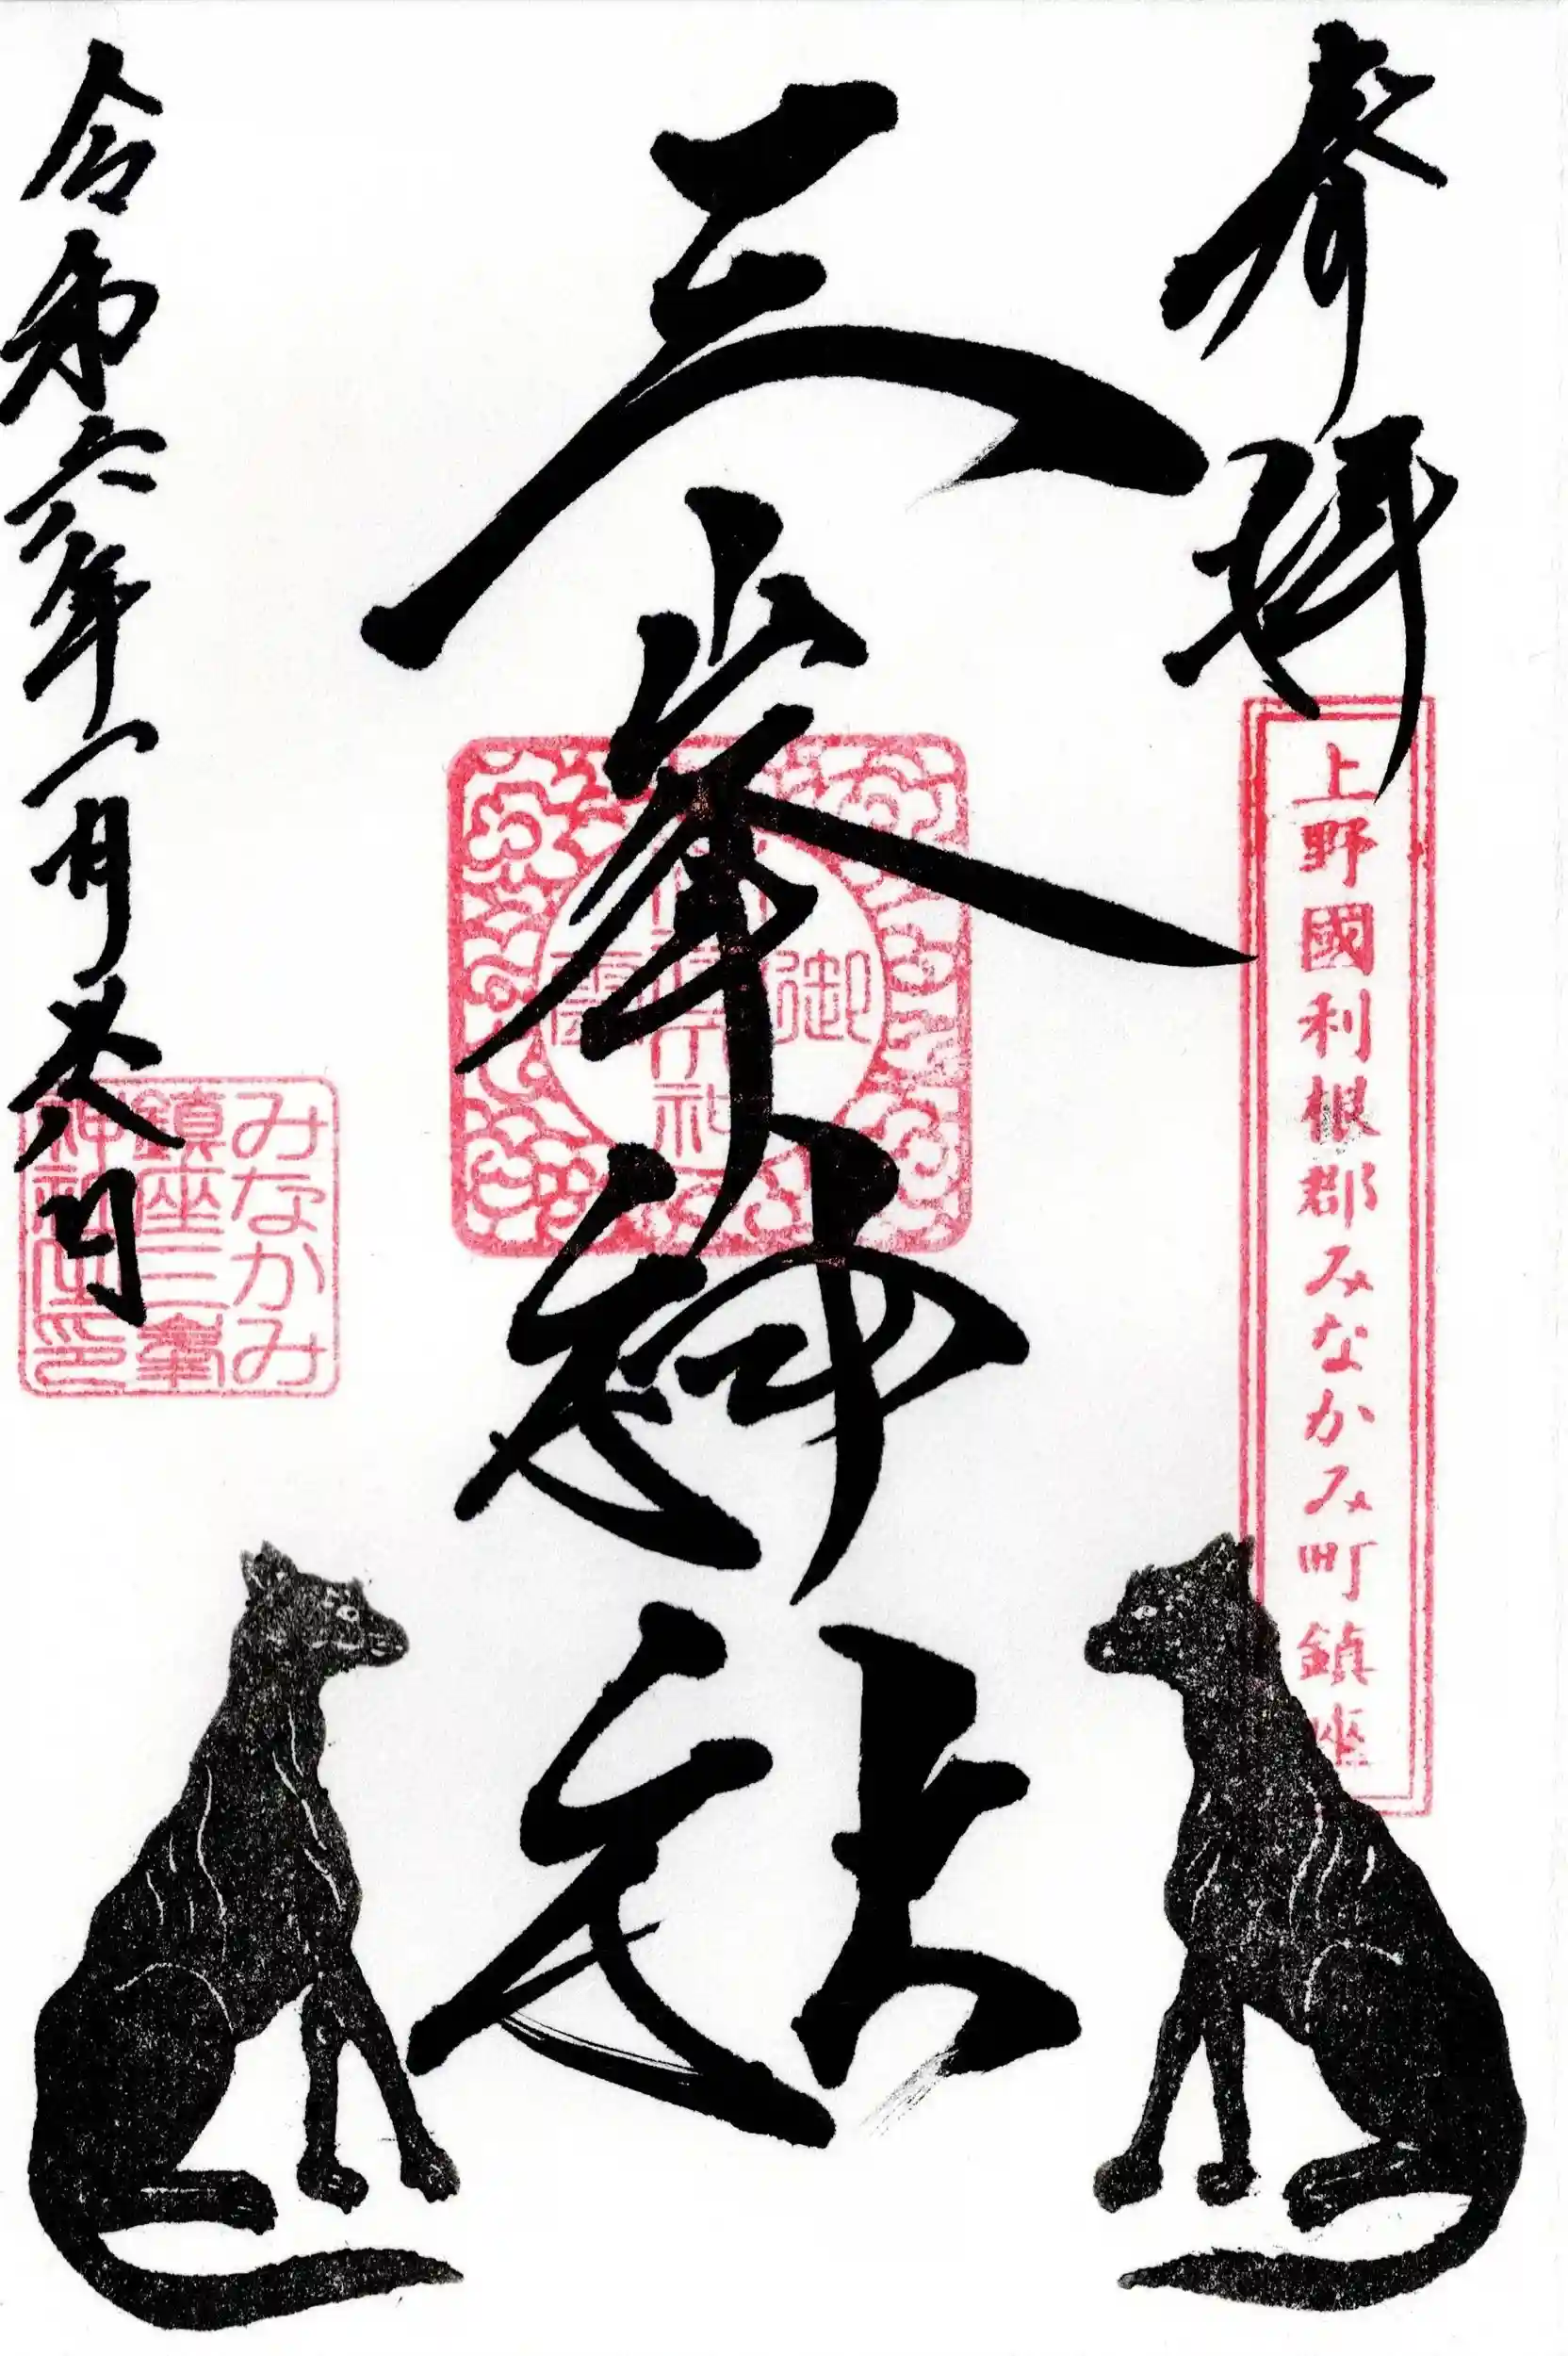 奉拝
上野國利根郡みなかみ町鎮座
三峯神社
御
令和六年一月日
みなかみ
鎮座三峯
神社之印